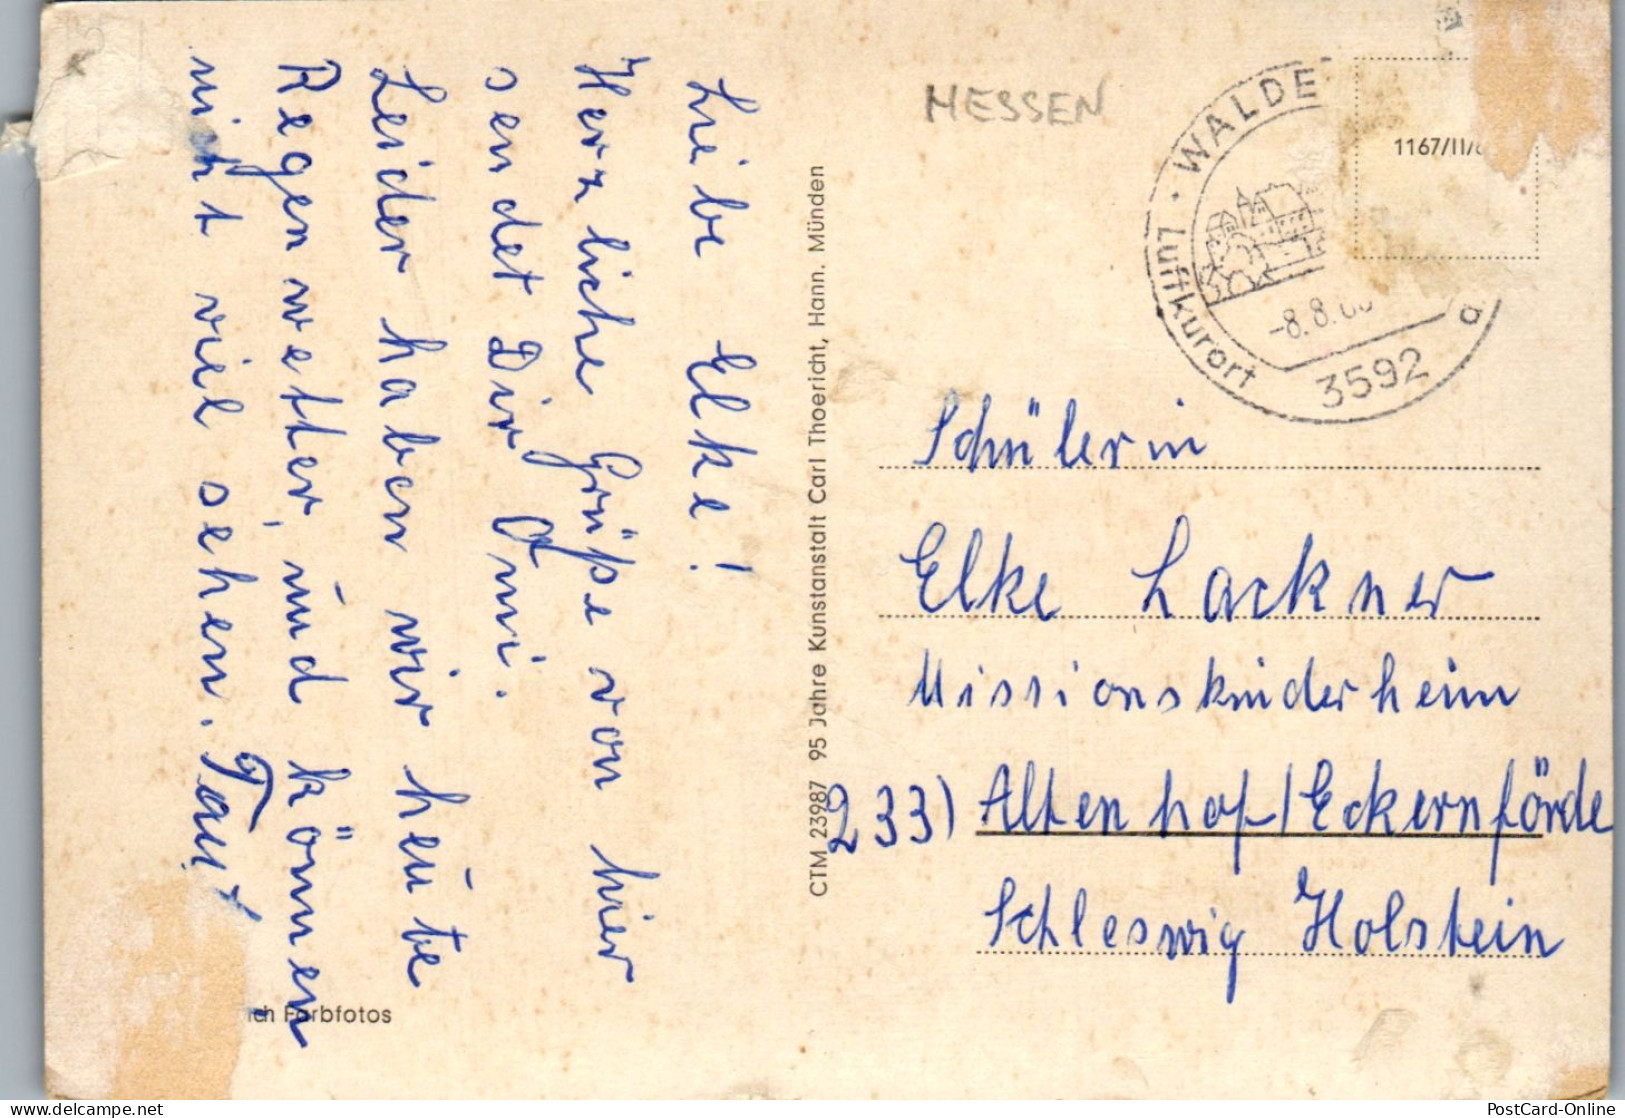 Liebe Elke!
Herzliche Grüße von hier
sendet Dir Omi.
Leider haben wir heute
Regenwetter, und können
nicht viel sehen.
MESSEN
WALDE
Luftkurort
-8.8.
3592
a
1167/II/
CTM 23987 95 Jahre Kunstanstalt Carl Thoericht, Hann. Münden
Schülerin
Elke Lackner
Missionskinderheim
233) Altenhof/Eckernförde
Schleswig Holstein
Farbfotos
PostCard-Online